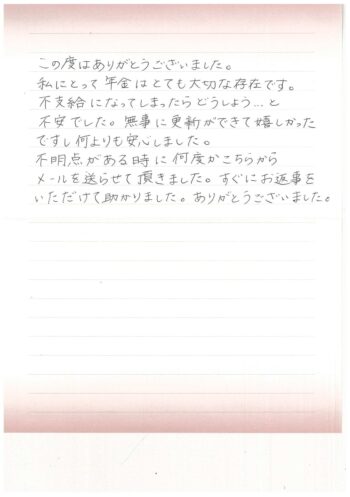 この度はありがとうございました。
私にとって年金はとても大切な存在です。
不支給になってしまったらどうしよう…と
不安でした。無事に更新ができて嬉しかった
ですし何よりも安心しました。
不明点がある時に何度かこちらから
メールを送らせて頂きました。すぐにお返事を
いただけて助かりました。ありがとうございました。